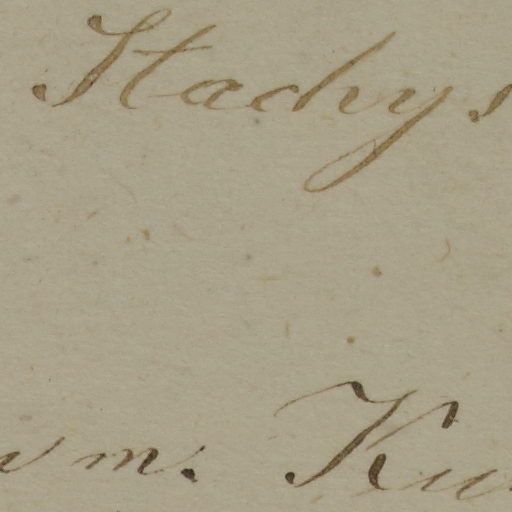 Stachys
m. Ku